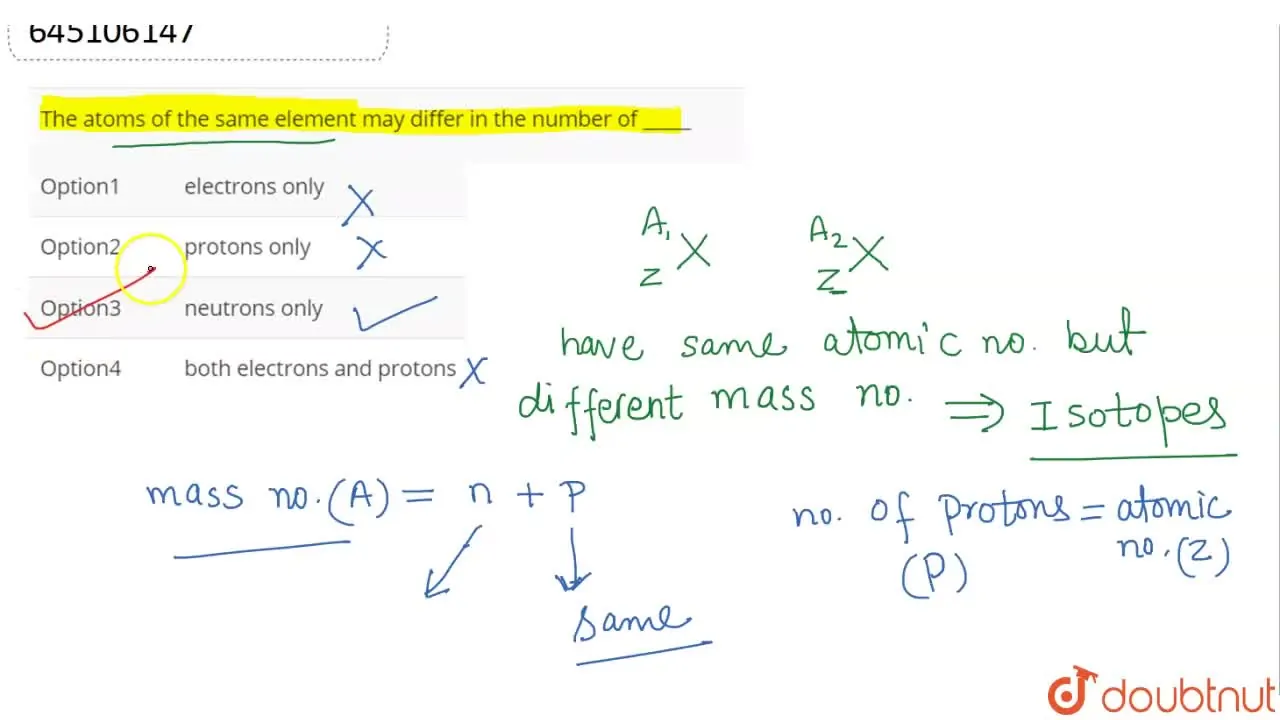 645106147
The atoms of the same element may differ in the number of _____
Option1 electrons only X
Option2 protons only X
Option3 neutrons only ✓
Option4 both electrons and protons X
A₁ X Z A₂ X Z
have same atomic no. but
different mass no. ⇒ Isotopes
mass no. (A) = n + p
same
no. of protons = atomic
(P) no. (Z)
doubtnut